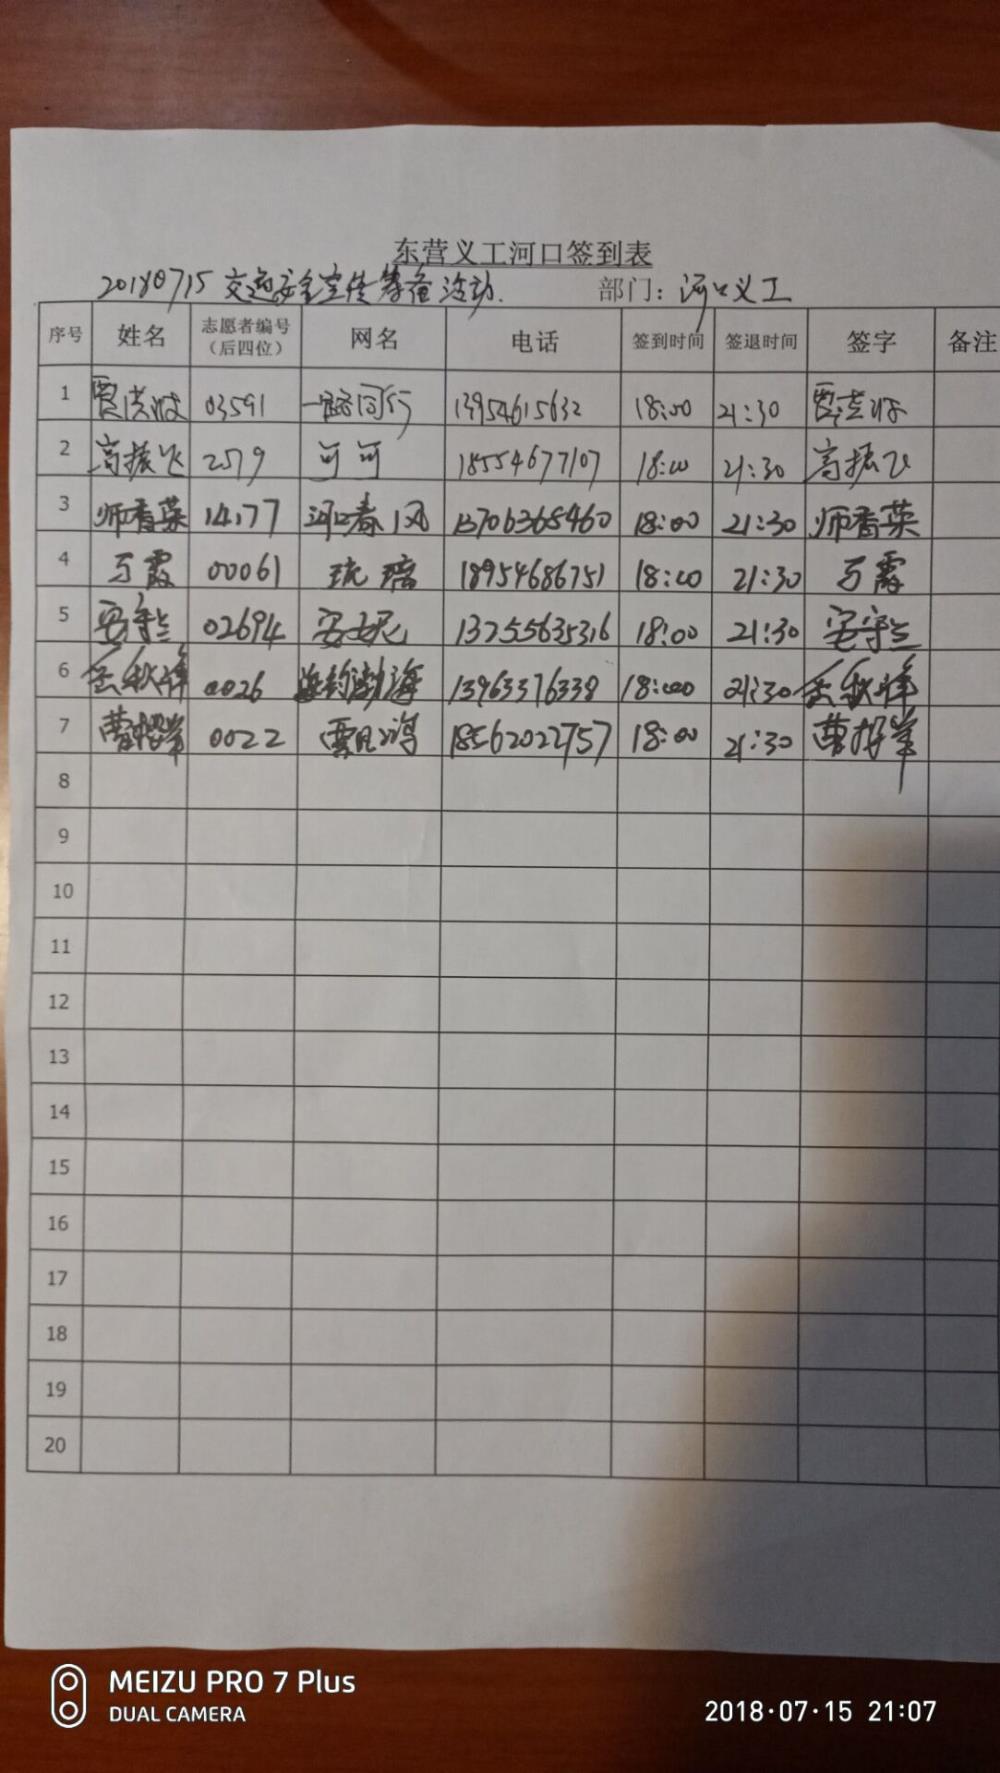 东营义工河口签到表
20180715 交通安全宣传筹备活动. 部门：河口义工
序号 姓名 志愿者编号（后四位） 网名 电话 签到时间 签退时间 签字 备注
1 贾洪波 03591 一路同行 13954615632 18:00 21:30 贾洪波
2 高振飞 2579 可可 18554677107 18:00 21:30 高振飞
3 师香菜 14177 河口春风 13706365460 18:00 21:30 师香菜
4 万霞 00061 琉璃 18954686751 18:00 21:30 万霞
5 安守兰 02694 安妮 13255635316 18:00 21:30 安守兰
6 岳秋峰 0026 相约渤海 13963376338 18:00 21:30 岳秋峰
7 曹 0022 18562022757 18:00 21:30 曹
8
9
10
11
12
13
14
15
16
17
18
19
20
MEIZU PRO 7 Plus
DUAL CAMERA
2018·07·15 21:07